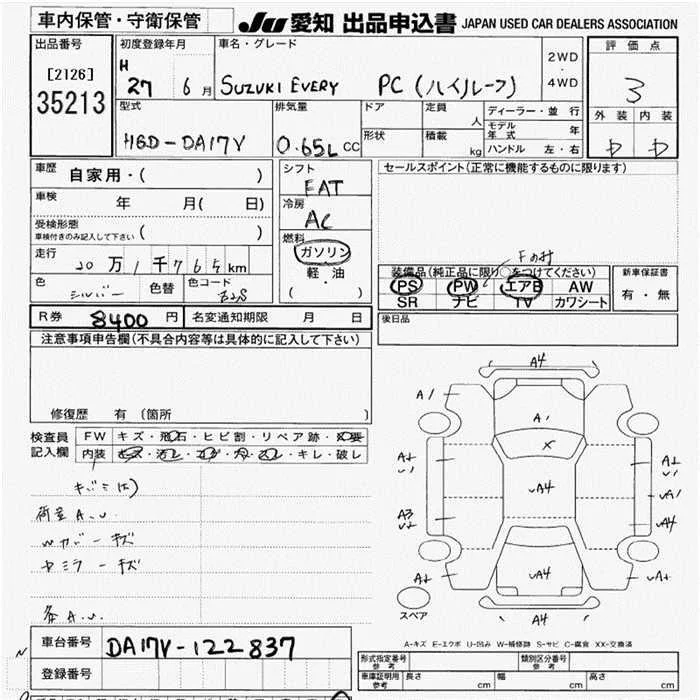 車内保管・守衛保管
JU 愛知 出品申込書 JAPAN USED CAR DEALERS ASSOCIATION
出品番号
[2126]
35213
初度登録年月
H 27 6 月
車名・グレード
SUZUKI EVERY PC (ハイルーフ)
2WD
・
4WD
評価点
3
外装 内装
中 中
型式
HBD-DA17V
排気量
0.65L CC
ドア
形状
定員
人
積載
kg
ディーラー・並行
モデル年式 年
ハンドル 左・右
車歴 自家用・( )
車検 年 月( 日)
受検形態
車検付きのみ記入して下さい ( )
走行
20 万 1 千 765 km
色
シルバー
色替
色コード
Z2S
シフト
FAT
冷房
AC
燃料
ガソリン
軽・油
( ・ )
セールスポイント(正常に機能するものに限ります)
Fのみ
装備品(純正品に限り○をつけてください)
PS PW エアB AW
SR ナビ TV カワシート
新車保証書
有・無
後日品
R券 8400 円
名変通知期限 月 日
注意事項申告欄(不具合内容等は具体的に記入して下さい)
修復歴 有 (箇所 )
検査員記入欄
FW キズ・飛石・ヒビ割・リペア跡・X要
内装 キズ・汚レ・コゲ・穴・スレ・キレ・破レ
キバミ(大)
荷室A.U.
Wカバーキズ
ドミラーキズ
各A.U.
A4
A1
A1
X
UA4
UA1
UA4
A3
UA4
A4
スペア
A-キズ E-エクボ U-凹み W-補修跡 S-サビ C-腐食 XX-交換済
車台番号 DA17V-122837
登録番号
形式指定番号
参考
類別区分番号
参考
車庫証明用
参考
長さ cm 幅 cm 高さ cm